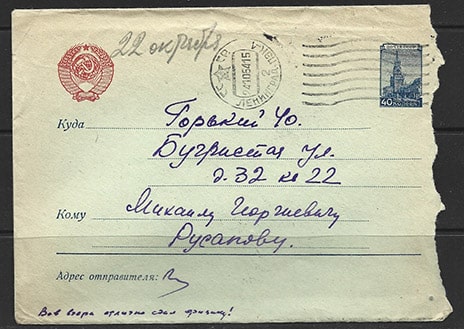 22 октября
СССР ЛЕНИНГРАД
24105415
2
40 КОПЕЕК
Куда
Горький 40.
Бугристая ул.
д. 32 кв 22
Кому
Михаилу Георгиевичу
Русакову.
Адрес отправителя:
Вов вчера отлично сдал физику!